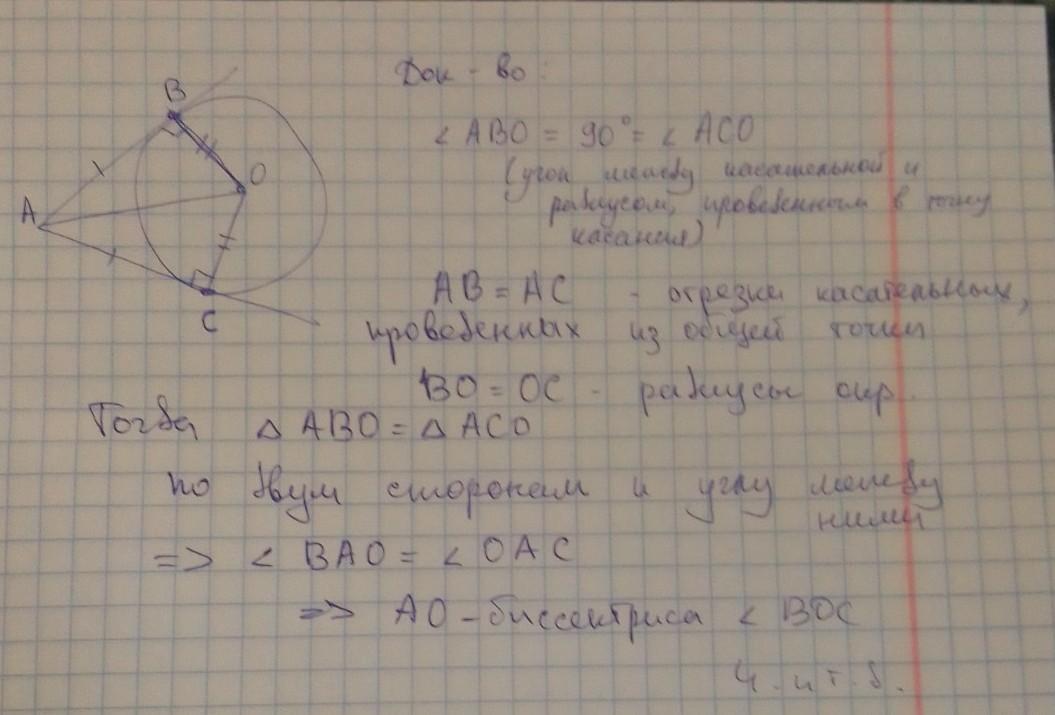 Док-во:
∠ABO = 90° = ∠ACO
(угол между касательной и
радиусом, проведенным в точку
касания)
AB = AC - отрезки касательных,
проведенных из общей точки
BO = OC - радиусы окр.
Тогда △ABO = △ACO
по двум сторонам и углу между
ними
=> ∠BAO = ∠OAC
=> AO - биссектриса ∠BOC
ч.и т.д.
B
O
A
C